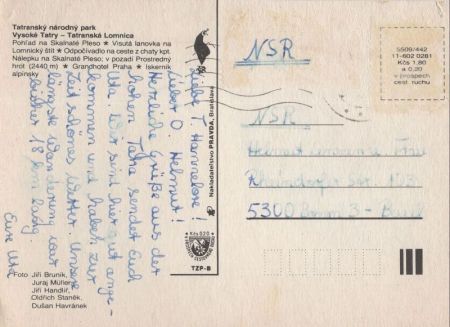 Tatranský národný park
Vysoké Tatry – Tatranská Lomnica
Pohľad na Skalnaté Pleso ★ Visutá lanovka na
Lomnický štít ★ Odpočívadlo na ceste z chaty kpt.
Nálepku na Skalnaté Pleso; v pozadí Prostredný
hrot (2440 m) ★ Grandhotel Praha ★ Ľskerník
alpínsky
Liebe T. Hannelore!
Lieber O. Helmut!
Herzliche Grüße aus der
hohen Tatra sendet Euch
Uta. Wir sind hier gut ange-
kommen und haben zur
Zeit schönes Wetter. Unsere
längste Wanderung war
bisher 18 km lang.
Eure Uta
Foto Jiří Bruník,
Juraj Müller,
Jiří Handlíř,
Oldřich Staněk,
Dušan Havránek
Nakladateľstvo PRAVDA, Bratislava
Kčs 0,20
TZP-B
5509/442
11-602 0281
Kčs 1,80
a 0,20
v prospech
cest. ruchu
NSR
NSR
Helmut
5300 Bonn 3 -